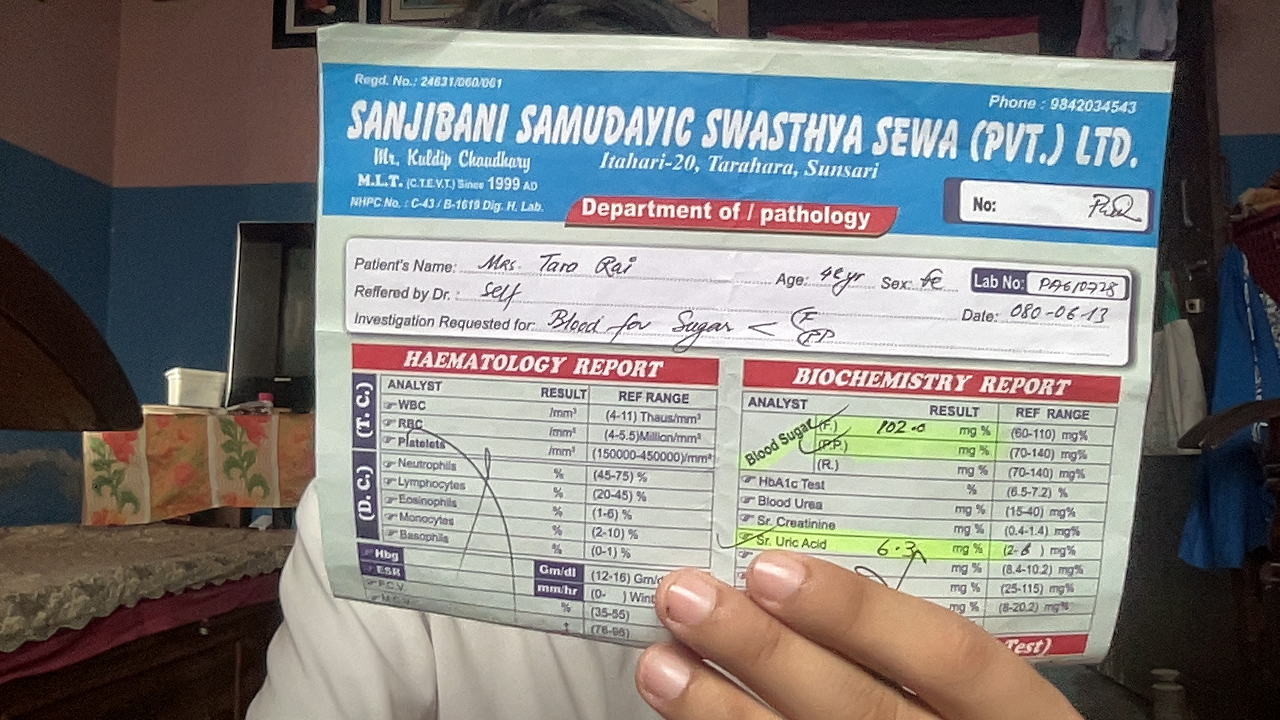 Regd. No.: 24631/060/061
Phone : 9842034543
SANJIBANI SAMUDAYIC SWASTHYA SEWA (PVT.) LTD.
Mr. Kuldip Chaudhary
Itahari-20, Tarahara, Sunsari
M.L.T. (C.T.E.V.T.) Since 1999 AD
NHPC.No. : C-43 / B-1619 Dig. H. Lab.
Department of / pathology
No:
Patient's Name: Mrs. Taro Rai Age: yr Sex: fe Lab No:
Reffered by Dr. : Self Date: 080-06-13
Investigation Requested for: Blood for Sugar < F
PP
HAEMATOLOGY REPORT
ANALYST RESULT REF RANGE
(T. C.)
WBC /mm³ (4-11) Thaus/mm³
RBC /mm³ (4-5.5)Million/mm³
Platelets /mm³ (150000-450000)/mm³
(D. C.)
Neutrophils % (45-75) %
Lymphocytes % (20-45) %
Eosinophils % (1-6) %
Monocytes % (2-10) %
Basophils % (0-1) %
Hbg Gm/dl (12-16) Gm/
ESR mm/hr (0- ) Wint
P.C.V. % (35-55)
(76-96)
BIOCHEMISTRY REPORT
ANALYST RESULT REF RANGE
Blood Sugar (F.) 102.0 mg % (60-110) mg%
(P.P.) mg % (70-140) mg%
(R.) mg % (70-140) mg%
HbA1c Test % (6.5-7.2) %
Blood Urea mg % (15-40) mg%
Sr. Creatinine mg % (0.4-1.4) mg%
Sr. Uric Acid 6.3 mg % (2- ) mg%
mg % (8.4-10.2) mg%
mg % (25-115) mg%
mg % (8-20.2) mg%
Test)